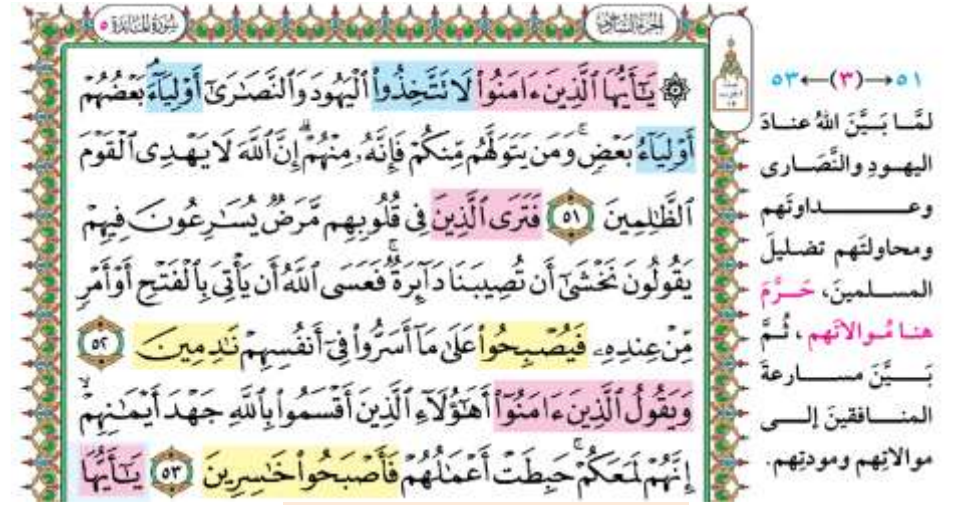 سُورَةُ المَائِدَة ٥
الجزء السادس
۞ يَٰٓأَيُّهَا ٱلَّذِينَ ءَامَنُوا۟ لَا تَتَّخِذُوا۟ ٱلْيَهُودَ وَٱلنَّصَٰرَىٰٓ أَوْلِيَآءَۘ بَعْضُهُمْ
أَوْلِيَآءُ بَعْضٍۚ وَمَن يَتَوَلَّهُم مِّنكُمْ فَإِنَّهُۥ مِنْهُمْۗ إِنَّ ٱللَّهَ لَا يَهْدِى ٱلْقَوْمَ
ٱلظَّٰلِمِينَ ٥١ فَتَرَى ٱلَّذِينَ فِى قُلُوبِهِم مَّرَضٌ يُسَٰرِعُونَ فِيهِمْ
يَقُولُونَ نَخْشَىٰٓ أَن تُصِيبَنَا دَآئِرَةٌۚ فَعَسَى ٱللَّهُ أَن يَأْتِىَ بِٱلْفَتْحِ أَوْ أَمْرٍ
مِّنْ عِندِهِۦ فَيُصْبِحُوا۟ عَلَىٰ مَآ أَسَرُّوا۟ فِىٓ أَنفُسِهِمْ نَٰدِمِينَ ٥٢
وَيَقُولُ ٱلَّذِينَ ءَامَنُوٓا۟ أَهَٰٓؤُلَآءِ ٱلَّذِينَ أَقْسَمُوا۟ بِٱللَّهِ جَهْدَ أَيْمَٰنِهِمْۙ
إِنَّهُمْ لَمَعَكُمْۚ حَبِطَتْ أَعْمَٰلُهُمْ فَأَصْبَحُوا۟ خَٰسِرِينَ ٥٣ يَٰٓأَيُّهَا
٥١→(٣)←٥٣
لمَّا بَيَّنَ اللهُ عنادَ
اليهودِ والنَّصَارى
وعداوتَهم
ومحاولتَهم تضليلَ
المسلمينَ، حَرَّمَ
هنا مُوالاتَهم، ثُمَّ
بَيَّنَ مسارعةَ
المنافقينَ إلى
موالاتِهم ومودتِهم.